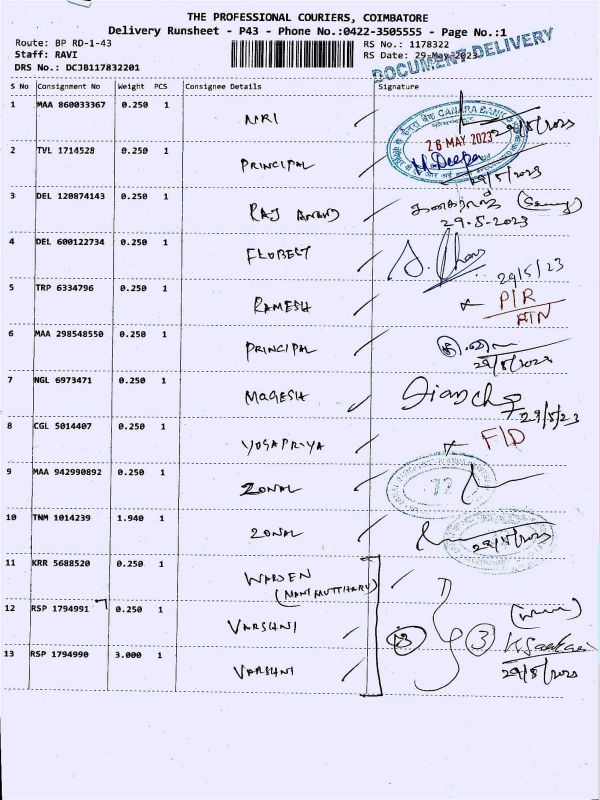 THE PROFESSIONAL COURIERS, COIMBATORE
Delivery Runsheet - P43 - Phone No.:0422-3505555 - Page No.:1
Route: BP RD-1-43 RS No.: 1178322
Staff: RAVI RS Date: 29-May-2023
DRS No.: DCJB117832201
DOCUMENT DELIVERY
S No Consignment No Weight PCS Consignee Details Signature
1 MAA 860033367 0.250 1 MRI CANARA BANK 29/5/2023
26 MAY 2023
2 TVL 1714528 0.250 1 PRINCIPAL M.Deepa 29/5/2023
3 DEL 120874143 0.250 1 RAJ ANAND
29.5-2023
4 DEL 600122734 0.250 1 29/5/23
5 TRP 6334796 0.250 1 RAMESH P/R
6 MAA 298548550 0.250 1 PRINCIPAL 29/5/2023
7 NGL 6973471 0.250 1 MAGESH 29/5/23
8 CGL 5014407 0.250 1 YOGAPRIYA F/D
9 MAA 942990892 0.250 1 ZONAL
10 TNM 1014239 1.940 1 ZONAL 29/5/2023
11 KRR 5688520 0.250 1 WARDEN
(MANIMUTTHARU)
12 RSP 1794991 0.250 1 VARSHNI 3
13 RSP 1794990 3.000 1 VARSHNI 29/5/2023